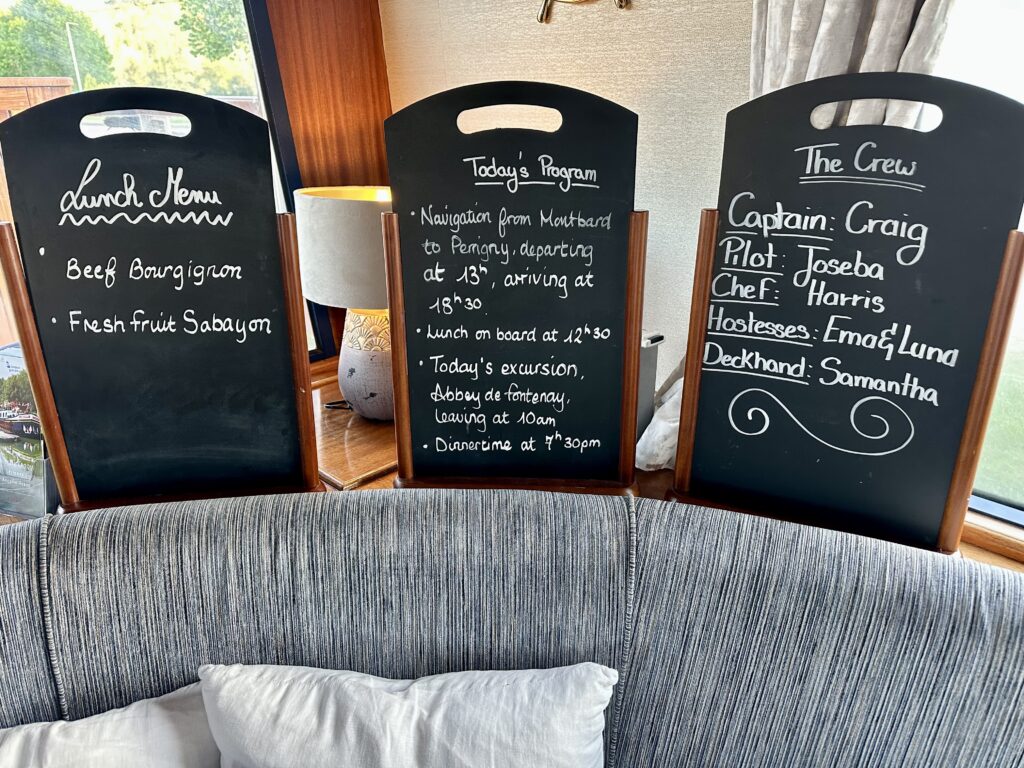 Lunch Menu
• Beef Bourgignon
• Fresh fruit Sabayon
Today's Program
• Navigation from Montbard
to Perigny, departing
at 13h, arriving at
18h30.
• Lunch on board at 12h30
• Today's excursion,
Abbey de fontenay,
leaving at 10am
• Dinnertime at 7h30pm
The Crew
Captain: Craig
Pilot: Joseba
Chef: Harris
Hostesses: Ema & Luna
Deckhand: Samantha